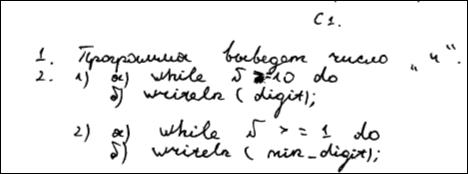 С1.
1. Программа выведет число „4“.
2. 1) а) while N >=10 do
б) writeln ( digit);
2) а) while N > = 1 do
б) writeln ( min_digit);